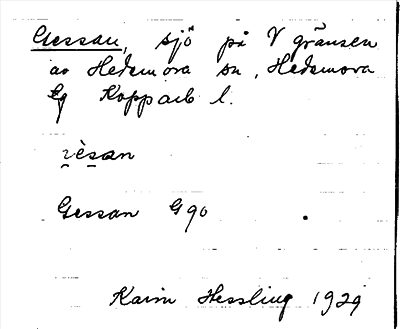 Gessan, sjö på V gränsen
av Hedemora sn, Hedemora
Kopparb l.
Gessan G 90
Karin Hessling 1929